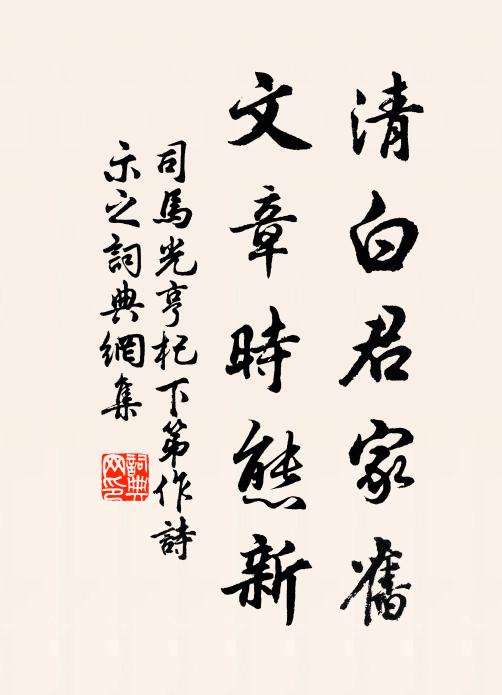 清白君家舊
文章時態新
司馬光亨杞下第作詩
示之詞典網集
詞典
网印